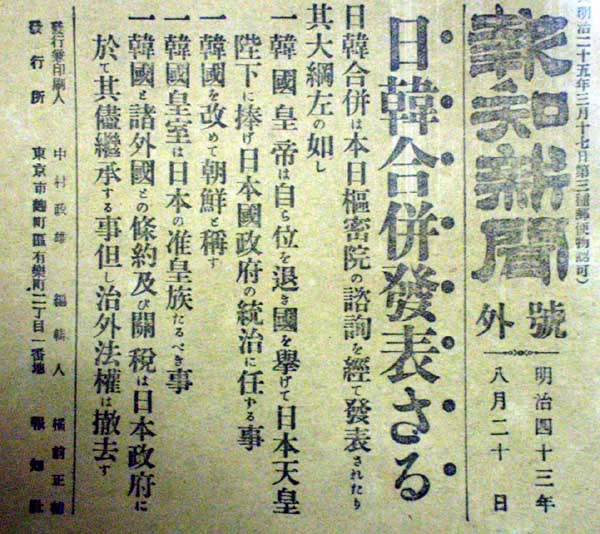 明治二十五年三月十七日第三種郵便物認可)
報知新聞
號外
明治四十三年
八月二十 日
日韓合併發表さる
日韓合併は本日樞密院の諮詢を經て發表されたり
其大綱左の如し
一韓國皇帝は自ら位を退き國を擧げて日本天皇
陛下に捧げ日本國政府の統治に任ずる事
一韓國を改めて朝鮮と稱す
一韓國皇室は日本の准皇族たるべき事
一韓國と諸外國との條約及び關稅は日本政府に
於て其儘繼承する事但し治外法權は撤去す
發行兼印刷人 中村政雄 編輯人 橘前正
發行所 東京市麴町區有樂町二丁目一番地 報知社